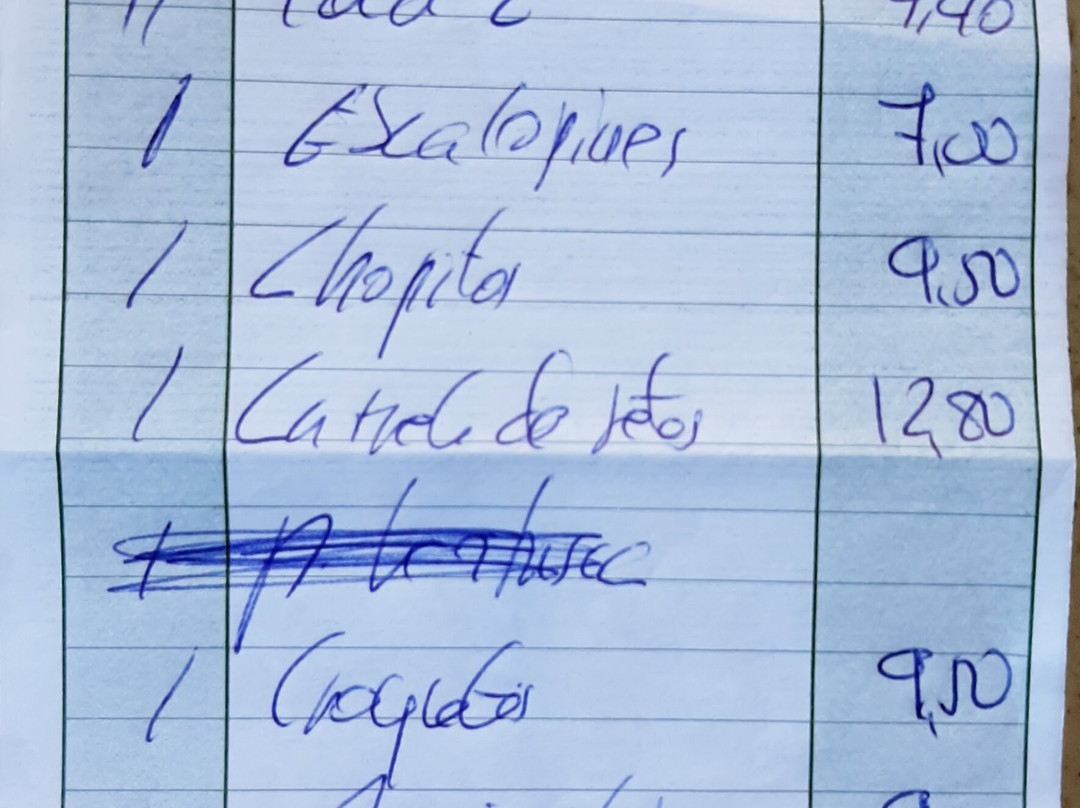 4,40
1 Escalopines 7,00
1 Chopitos 9,50
1 de setas 12,80
1 Croquetas 9,50